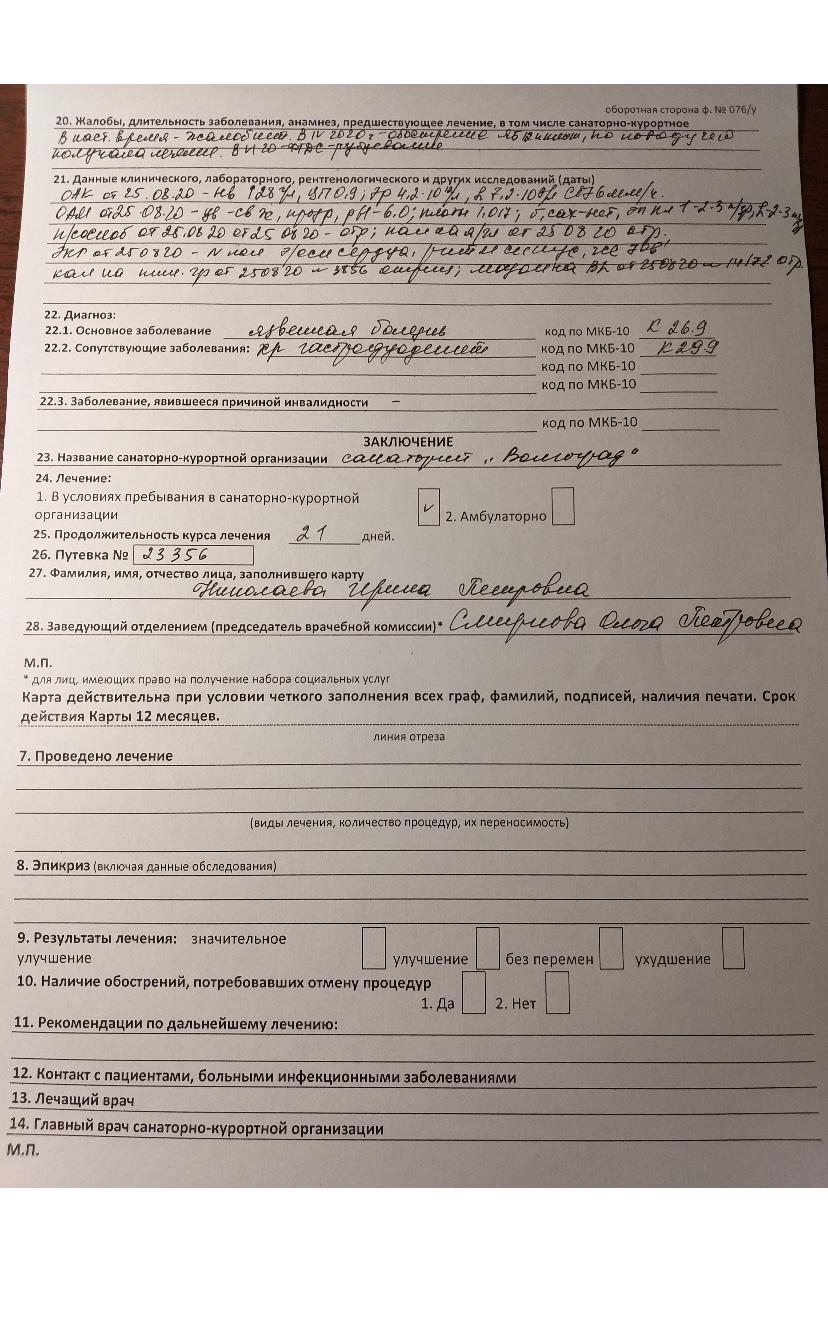 оборотная сторона ф. № 076/у
20. Жалобы, длительность заболевания, анамнез, предшествующее лечение, в том числе санаторно-курортное
В наст. время - жалоб нет. В IV 2020 г - обострение ЯБ 12 п кишки, по поводу чего
получала лечение. В VI 20 ФГДС - рубцевание
21. Данные клинического, лабораторного, рентгенологического и других исследований (даты)
ОАК от 25.08.20 - Нв 128 г/л, ЦП 0,9; Эр 4,2·10 /л, L 7,2·10 /л СОЭ 6 мм/ч.
ОАМ от 25 08 20 - цв - св ж, прозр, рН - 6.0; плотн 1,017; б, сах - нет, эп пл 1-2-3 п/зр, L-2-3
п/соскоб от 25.08.20 от 25 08 20 - отр; кал са я/гл от 25 08 20 отр.
ЭКГ от 25 08 20 - сердца, ритм синус, чсс
кал на гр от 25 08 20 отр от 25 08 20 отр.
22. Диагноз:
22.1. Основное заболевание язвенная болезнь код по МКБ-10 К 26.9
22.2. Сопутствующие заболевания: хр гастродуоденит код по МКБ-10 К 29 9
код по МКБ-10
код по МКБ-10
22.3. Заболевание, явившееся причиной инвалидности –
код по МКБ-10
ЗАКЛЮЧЕНИЕ
23. Название санаторно-курортной организации санаторий „Волгоград“
24. Лечение:
1. В условиях пребывания в санаторно-курортной
организации 2. Амбулаторно
25. Продолжительность курса лечения 21 дней.
26. Путевка № 23356
27. Фамилия, имя, отчество лица, заполнившего карту
Николаева Ирина Петровна
28. Заведующий отделением (председатель врачебной комиссии)* Смирнова Ольга Петровна
М.П.
* для лиц, имеющих право на получение набора социальных услуг
Карта действительна при условии четкого заполнения всех граф, фамилий, подписей, наличия печати. Срок
действия Карты 12 месяцев.
линия отреза
7. Проведено лечение
(виды лечения, количество процедур, их переносимость)
8. Эпикриз (включая данные обследования)
9. Результаты лечения: значительное
улучшение улучшение без перемен ухудшение
10. Наличие обострений, потребовавших отмену процедур
1. Да 2. Нет
11. Рекомендации по дальнейшему лечению:
12. Контакт с пациентами, больными инфекционными заболеваниями
13. Лечащий врач
14. Главный врач санаторно-курортной организации
М.П.